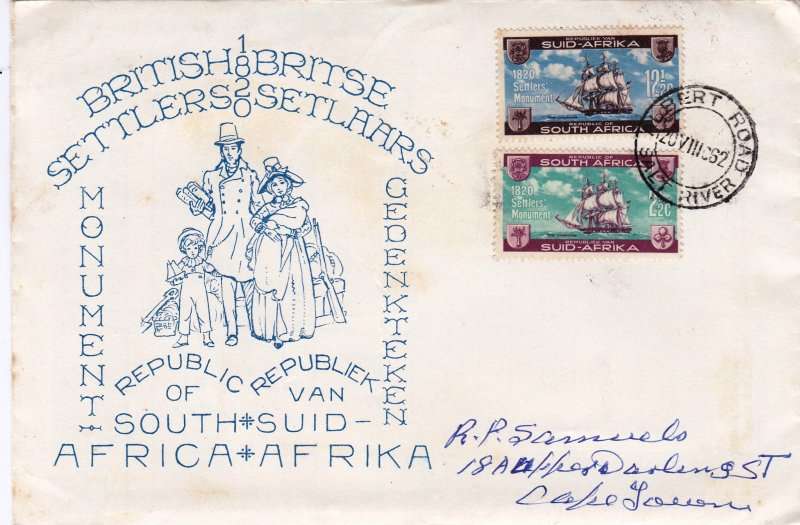 BRITISH 1820 BRITSE
SETTLERS SETLAARS
MONUMENT
GEDENKTEKEN
REPUBLIC REPUBLIEK
OF VAN
SOUTH SUID-
AFRICA AFRIKA
REPUBLIEK VAN
SUID-AFRIKA
1820
Settlers'
Monument
12½c
REPUBLIC OF
SOUTH AFRICA
REPUBLIC OF
SOUTH AFRICA
1820
Settlers'
Monument
2½c
REPUBLIEK VAN
SUID-AFRIKA
BERT ROAD
20 VIII 62
SALT RIVER
R.P. Samuels
18A Upper Darling ST
Cape Town